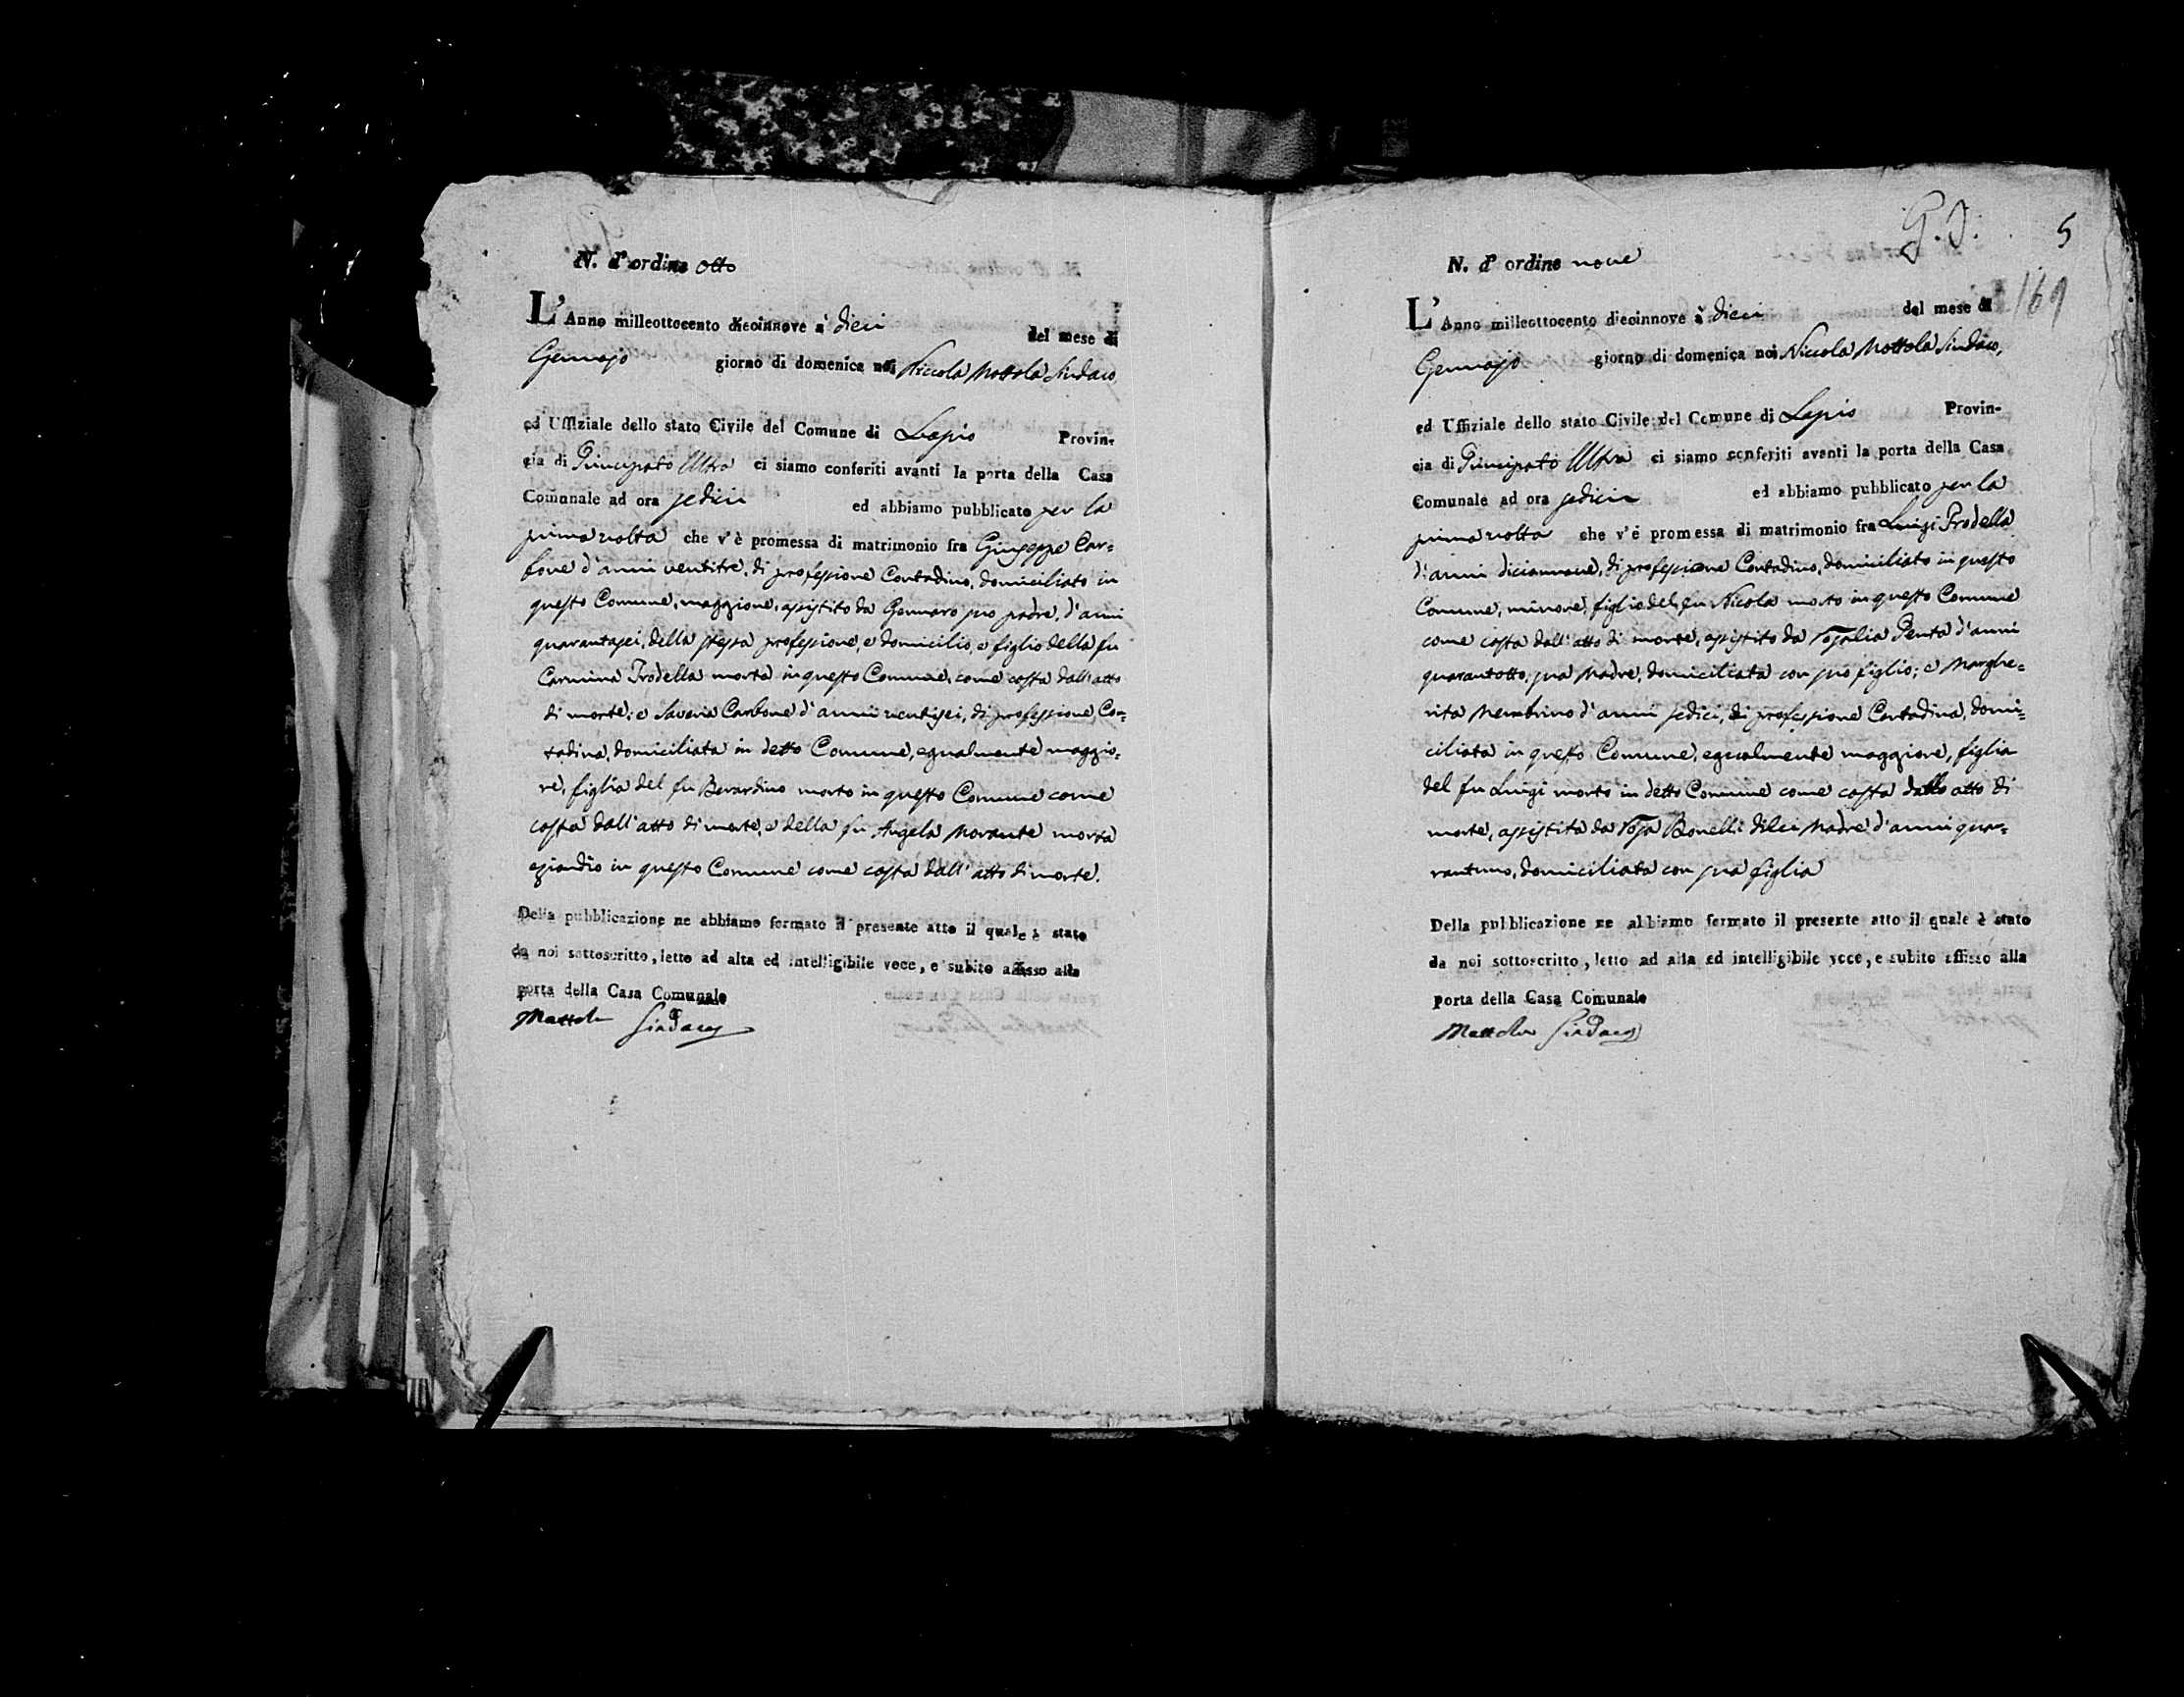 N. d'ordine otto
L'Anno milleottocento diecinnove à dieci del mese di
Gennajo giorno di domenica noi Niccola Mottola Sindaco
ed Uffiziale dello stato Civile del Comune di Lapio Provin-
cia di Principato Ultra ci siamo conferiti avanti la porta della Casa
Comunale ad ora sedici ed abbiamo pubblicato per la
prima volta che v'è promessa di matrimonio fra Giuseppe Car=
bone d'anni ventitre, di professione Contadino, domiciliato in
questo Comune, maggiore, assistito da Gennaro suo padre, d'anni
quarantasei, della stessa professione, e domicilio, e figlio della fu
Carmina Trodella morta in questo Comune, come costa dall'atto
di morte; e Saveria Carbone d'anni ventisei, di professione Con=
tadina, domiciliata in detto Comune, egualmente maggio=
re, figlia del fu Berardino morto in questo Comune come
costa dall'atto di morte, e della fu Angela Morante morta
eziandio in questo Comune come costa dall'atto di morte.
Della pubblicazione ne abbiamo formato il presente atto il quale è stato
da noi sottoscritto, letto ad alta ed intelligibile voce, e subito affisso alla
porta della Casa Comunale
Mottola Sindaco
5
169
N. d'ordine nove
L'Anno milleottocento diecinnove à dieci del mese di
Gennajo giorno di domenica noi Niccola Mottola Sindaco,
ed Uffiziale dello stato Civile del Comune di Lapio Provin-
cia di Principato Ultra ci siamo conferiti avanti la porta della Casa
Comunale ad ora sedici ed abbiamo pubblicato per la
prima volta che v'é promessa di matrimonio fra Luigi Trodella
d'anni diciannove, di professione Contadino, domiciliato in questo
Comune, minore, figlio del fu Nicola morto in questo Comune
come costa dall'atto di morte, assistito da Rosalia Penta d'anni
quarantotto, sua Madre, domiciliata con suo figlio; e Marghe=
rita Membrino d'anni sedici, di professione Contadina, domi=
ciliata in questo Comune, egualmente maggiore, figlia
del fu Luigi morto in detto Comune come costa dallo atto di
morte, assistita da Rosa Bonelli di lei Madre d'anni qua=
rantuno, domiciliata con sua figlia
Della pubblicazione ne abbiamo formato il presente atto il quale è stato
da noi sottoscritto, letto ad alta ed intelligibile voce, e subito affisso alla
porta della Casa Comunale
Mottola Sindaco